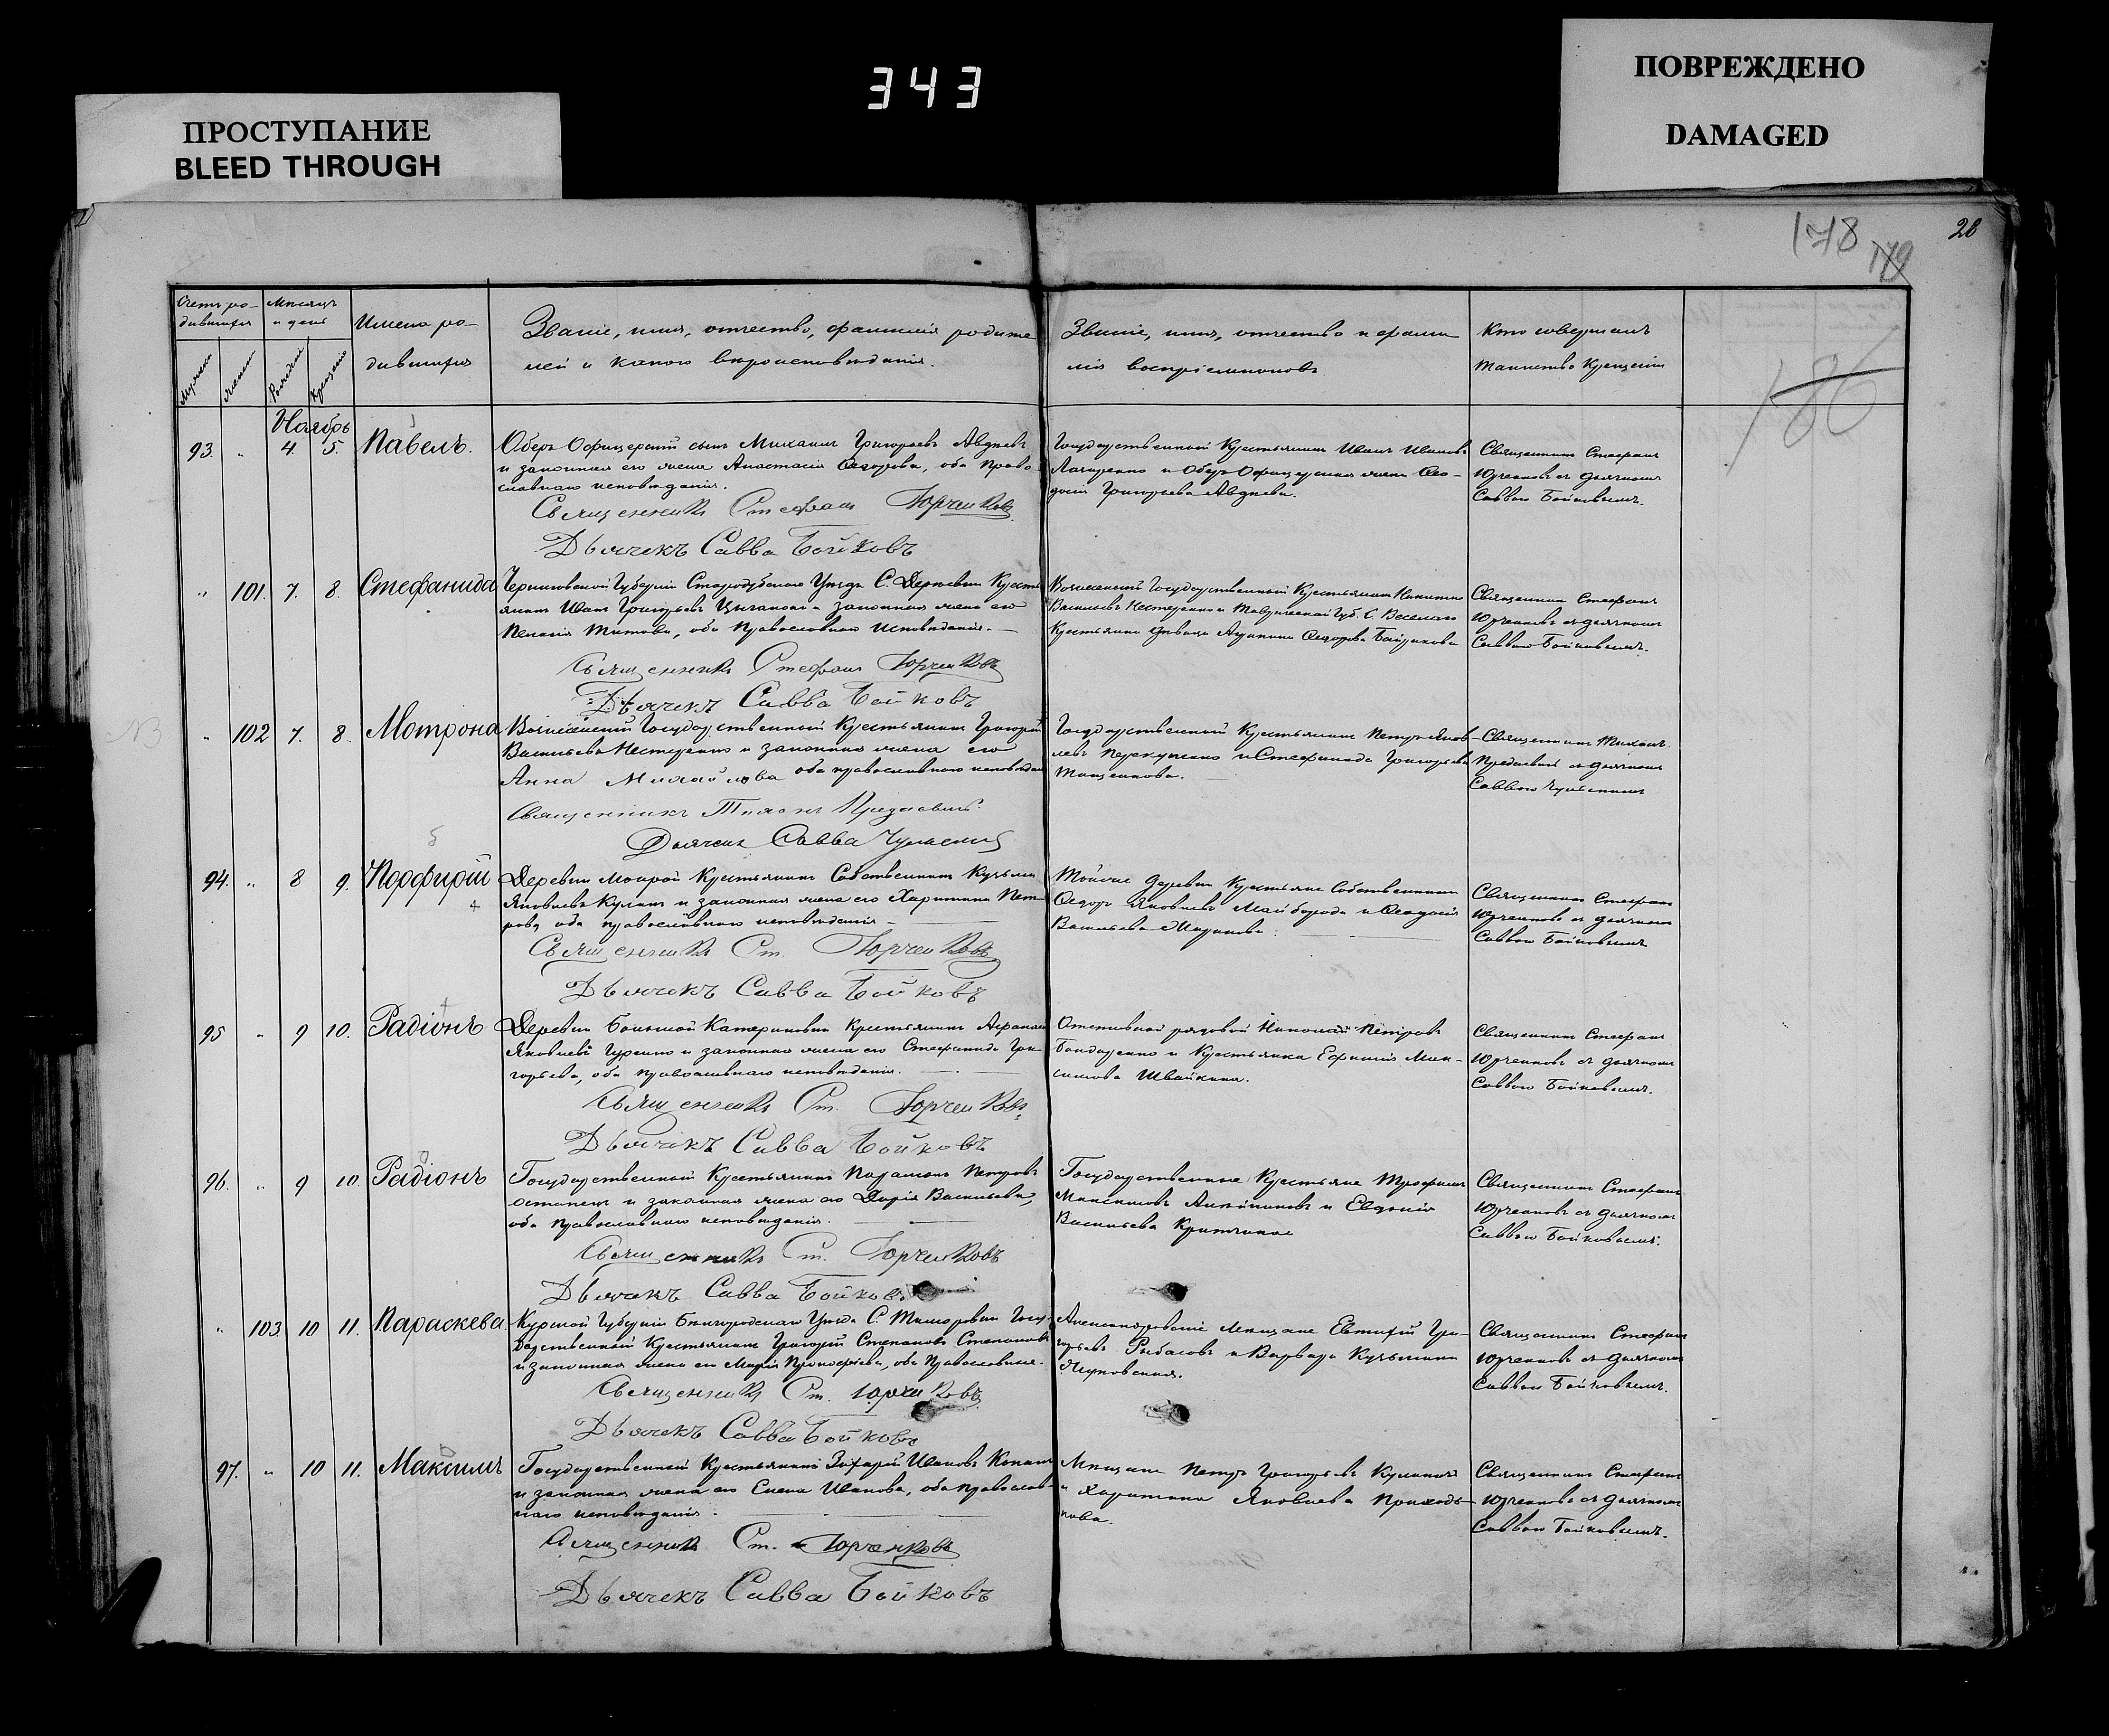 343
ПРОСТУПАНИЕ
BLEED THROUGH
ПОВРЕЖДЕНО
DAMAGED
178
179
28
186
Счетъ ро-
дившихся
Мѣсяцъ
и день
Имена ро-
дившихся
Званіе, имя, отчество, фамилія родите
лей и какого вѣроисповѣданія.
Званіе, имя, отчество и фами
лія воспріемниковъ
Кто совершалъ
таинство крещенія
Ноябрь
93. " 4. 5. Павелъ.
Оберъ Офицерскій сынъ Михаилъ Григорьевъ Авдѣевъ
и законная его жена Анастасія Федорова, оба Право-
славнаго исповѣданія.
Священникъ Стефанъ Юрченковъ
Дьячекъ Савва Бойковъ
Государственный Крестьянинъ Иванъ Ивановъ
и Оберъ Офицерская жена Фео-
досія Григорьева Авдѣева.
Священникъ Стефанъ
Юрченковъ съ дьячкомъ
Саввою Бойковымъ.
" 101. 7. 8. Стефанида
Черниговской Губерніи Стародубскаго Уѣзда С. Кресть
янинъ Иванъ Григорьевъ и законная жена его
Пелагія Титова, оба Православнаго исповѣданія.
Священникъ Стефанъ Юрченковъ
Дьячекъ Савва Бойковъ
Государственный Крестьянинъ Никита
Васильевъ Нестеренко и Таврической Губ. С.
Крестьянка дѣвица Федорова
Священникъ Стефанъ
Юрченковъ съ дьячкомъ
Саввою Бойковымъ.
" 102 7. 8. Мотрона
Государственный Крестьянинъ Григорій
Васильевъ Нестеренко и законная жена его
Анна Михайлова оба православнаго исповѣдан
Священникъ
Дьячекъ Савва
Государственный Крестьянинъ Петръ Яков-
левъ и Стефанида Григорьева
Священникъ
съ дьячкомъ
Саввою
94. " 8 9. Порфирій
Деревни Мокрой Крестьянинъ Собственникъ Кузьма
Яковлевъ Куликъ и законная жена его Харитина Пет-
рова, оба православнаго исповѣданія
Священникъ Ст. Юрченковъ
Дьячекъ Савва Бойковъ
Тойже деревни Крестьяне Собственники
Федоръ Яковлевъ Майборода и Феодосія
Васильева
Священникъ Стефанъ
Юрченковъ съ дьячкомъ
Саввою Бойковымъ
95 " 9 10. Радіонъ
Деревни Большой Катериновки Крестьянинъ Афанасій
Яковлевъ Гуренко и законная жена его Стефанида Гри-
горьева, оба православнаго исповѣданія.
Священникъ Ст. Юрченковъ
Дьячекъ Савва Бойковъ
Отставной рядовой Николай Петровъ
Бондаренко и Крестьянка Ефимія Мак-
симова Швайкина.
Священникъ Стефанъ
Юрченковъ съ дьячкомъ
Саввою Бойковымъ.
96. " 9 10. Радіонъ
Государственный Крестьянинъ Петровъ
и законная жена его Дарія Васильева,
оба православнаго исповѣданія.
Священникъ Ст. Юрченковъ
Дьячекъ Савва Бойковъ
Государственные Крестьяне Трофимъ
Максимовъ и Евдокія
Васильева
Священникъ Стефанъ
Юрченковъ съ дьячкомъ
Саввою Бойковымъ.
" 103. 10 11. Параскева.
Курской Губерніи Бѣлгородскаго Уѣзда С. Госу-
дарственный Крестьянинъ Григорій Степановъ Степановъ
и законная жена его Марія Прокофьева, оба Православные.
Священникъ Ст. Юрченковъ
Дьячекъ Савва Бойковъ
Александровскіе Мѣщане Евтихій Гри-
горьевъ Рыбасовъ и Варвара Кузьмина
Священникъ Стефанъ
Юрченковъ съ дьячкомъ
Саввою Бойковымъ.
97. " 10 11. Максимъ
Государственный Крестьянинъ Захарій Ивановъ
и законная жена его Елена Иванова, оба православ-
наго исповѣданія.
Священникъ Ст. Юрченковъ
Дьячекъ Савва Бойковъ
Мѣщане Петръ Григорьевъ
и Харитина Яковлева Приходь-
кова.
Священникъ Стефанъ
Юрченковъ съ дьячкомъ
Саввою Бойковымъ.